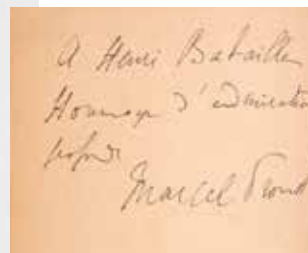 A Henri Bataille
Hommage d'admiration
profonde
Marcel Proust